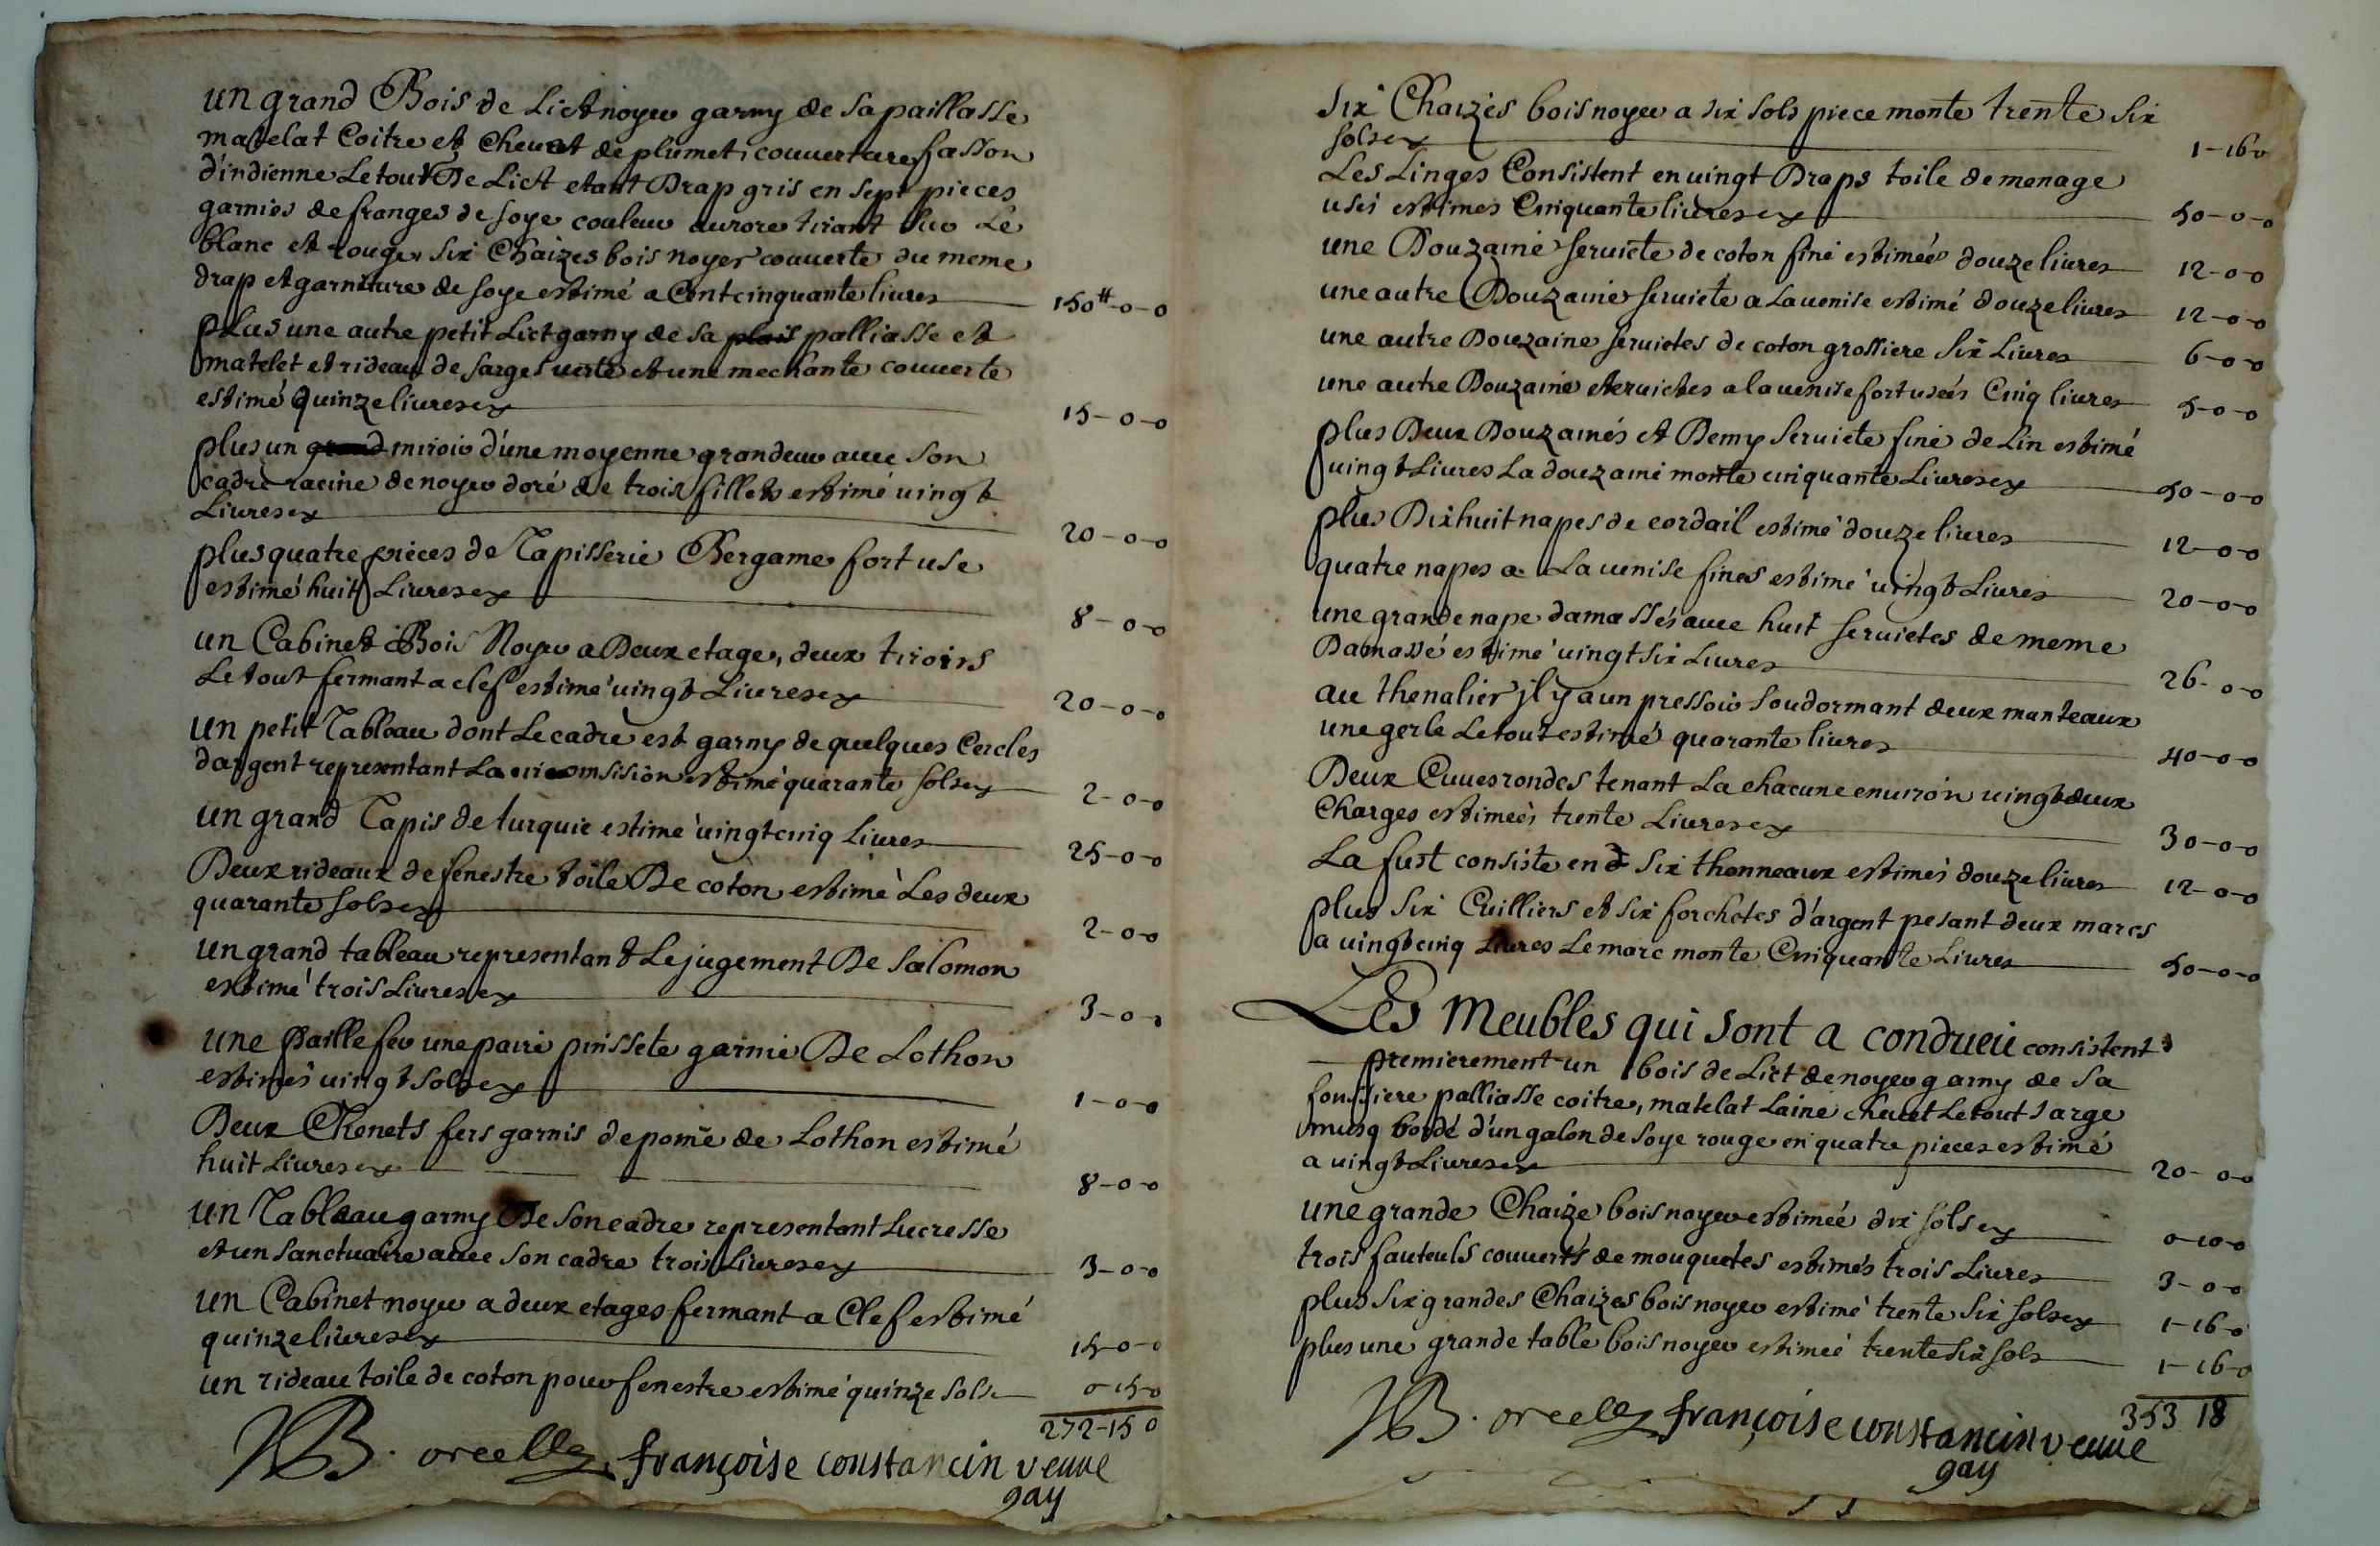 un grand Bois de Lict noyer garny de sa paillasse
matelat Coitre et Chevet de plumet, couverture fasson
d'indienne Le tout De Lict etant Drap gris en sept pieces
garnies de franges de soye couleur aurore tirant sur Le
blanc et rouge, six Chaizes bois noyer couverte du meme
drap et garniture de soye estimé a Cent cinquante livres 150tt-0-0
plus une autre petit Lict garny de sa palliasse et
matelet et rideau de sarges verte et une mechante couverte
estimé quinze livres 15-0-0
plus un grand miroir d'une moyenne grandeur avec son
cadre racine de noyer doré de trois fillets estimé vingt
Livres 20-0-0
plus quatre pieces de Tapisserie Bergame fort use
estimé huit Livres 8-0-0
un Cabinet Bois Noyer a Deux etage, deux tiroirs
Le tout fermant a clef estimé vingt Livres 20-0-0
un petit Tableau dont Le cadre est garny de quelques Cercles
d'argent representant La circomsision estimé quarante sols 2-0-0
un grand Tapis de turquie estimé vingt cinq Livres 25-0-0
Deux rideaux de fenestre toile De coton estimé Les deux
quarante sols 2-0-0
un grand tableau representant Le jugement De Salomon
estimé trois Livres 3-0-0
une Paille feu une paire pinssete garnie De Lothon
estimés vingt sols 1-0-0
Deux Chenets fers garnis de pome de Lothon estimé
huit Livres 8-0-0
un Tableau garny De son cadre representant Lucresse
et un Sanctuaire avec son cadre trois Livres 3-0-0
un Cabinet noyer a deux etages fermant a Clef estimé
quinze livres 15-0-0
un rideau toile de coton pour fenestre estimé quinze sols 0-15-0
272-15 0
orcelle françoise constancin veuve
gay
six Chaizes bois noyer a six sols piece monte trente six
sols 1-16 0
Les Linges Consistent en vingt Draps toile de menage
usés estimés Cinquante livres 50-0-0
une Douzaine serviete de coton fine estimée douze livres 12-0-0
une autre Douzaine serviete a La venise estimé douze livres 12-0-0
une autre Douzaine servietes de coton grossiere six Livres 6-0-0
une autre Douzaine servietes a la venise fort usées Cinq livres 5-0-0
plus Deux Douzaines et Demy serviete fine de Lin estimé
vingt Livres La douzaine monte cinquante Livres 50-0-0
plus Dix huit napes de cordail estimé douze livres 12-0-0
quatre napes a La venise fines estimé vingt Livres 20-0-0
une grande nape damassés avec huit servietes de meme
Damassé estimé vingt six Livres 26-0-0
au thenalier jl y a un pressoir soudormant deux manteaux
une gerle Le tout estimé quarante livres 40-0-0
Deux Cuves rondes tenant La chacune environ vingt deux
Charges estimées trente Livres 30-0-0
La fust consiste en six thonneaux estimés douze livres 12-0-0
plus six Cuilliers et six forchetes d'argent pesant deux marcs
a vingt cinq Livres Le marc monte Cinquante Livres 50-0-0
Les Meubles qui sont a condrieu consistent
premierement un bois de Lict de noyer garny de sa
fonssiere palliasse coitre, matelat Laine chevet Le tout sarge
musq bordé d'un galon de soye rouge en quatre pieces estimé
a vingt Livres 20-0-0
une grande Chaize bois noyer estimée dix sols 0-10-0
trois fauteuls couverts de mouquetes estimés trois Livres 3-0-0
plus six grandes Chaizes bois noyer estimé trente six sols 1-16-0
plus une grande table bois noyer estimée trente six sols 1-16-0
353 18
orcelle françoise constancin veuve
gay